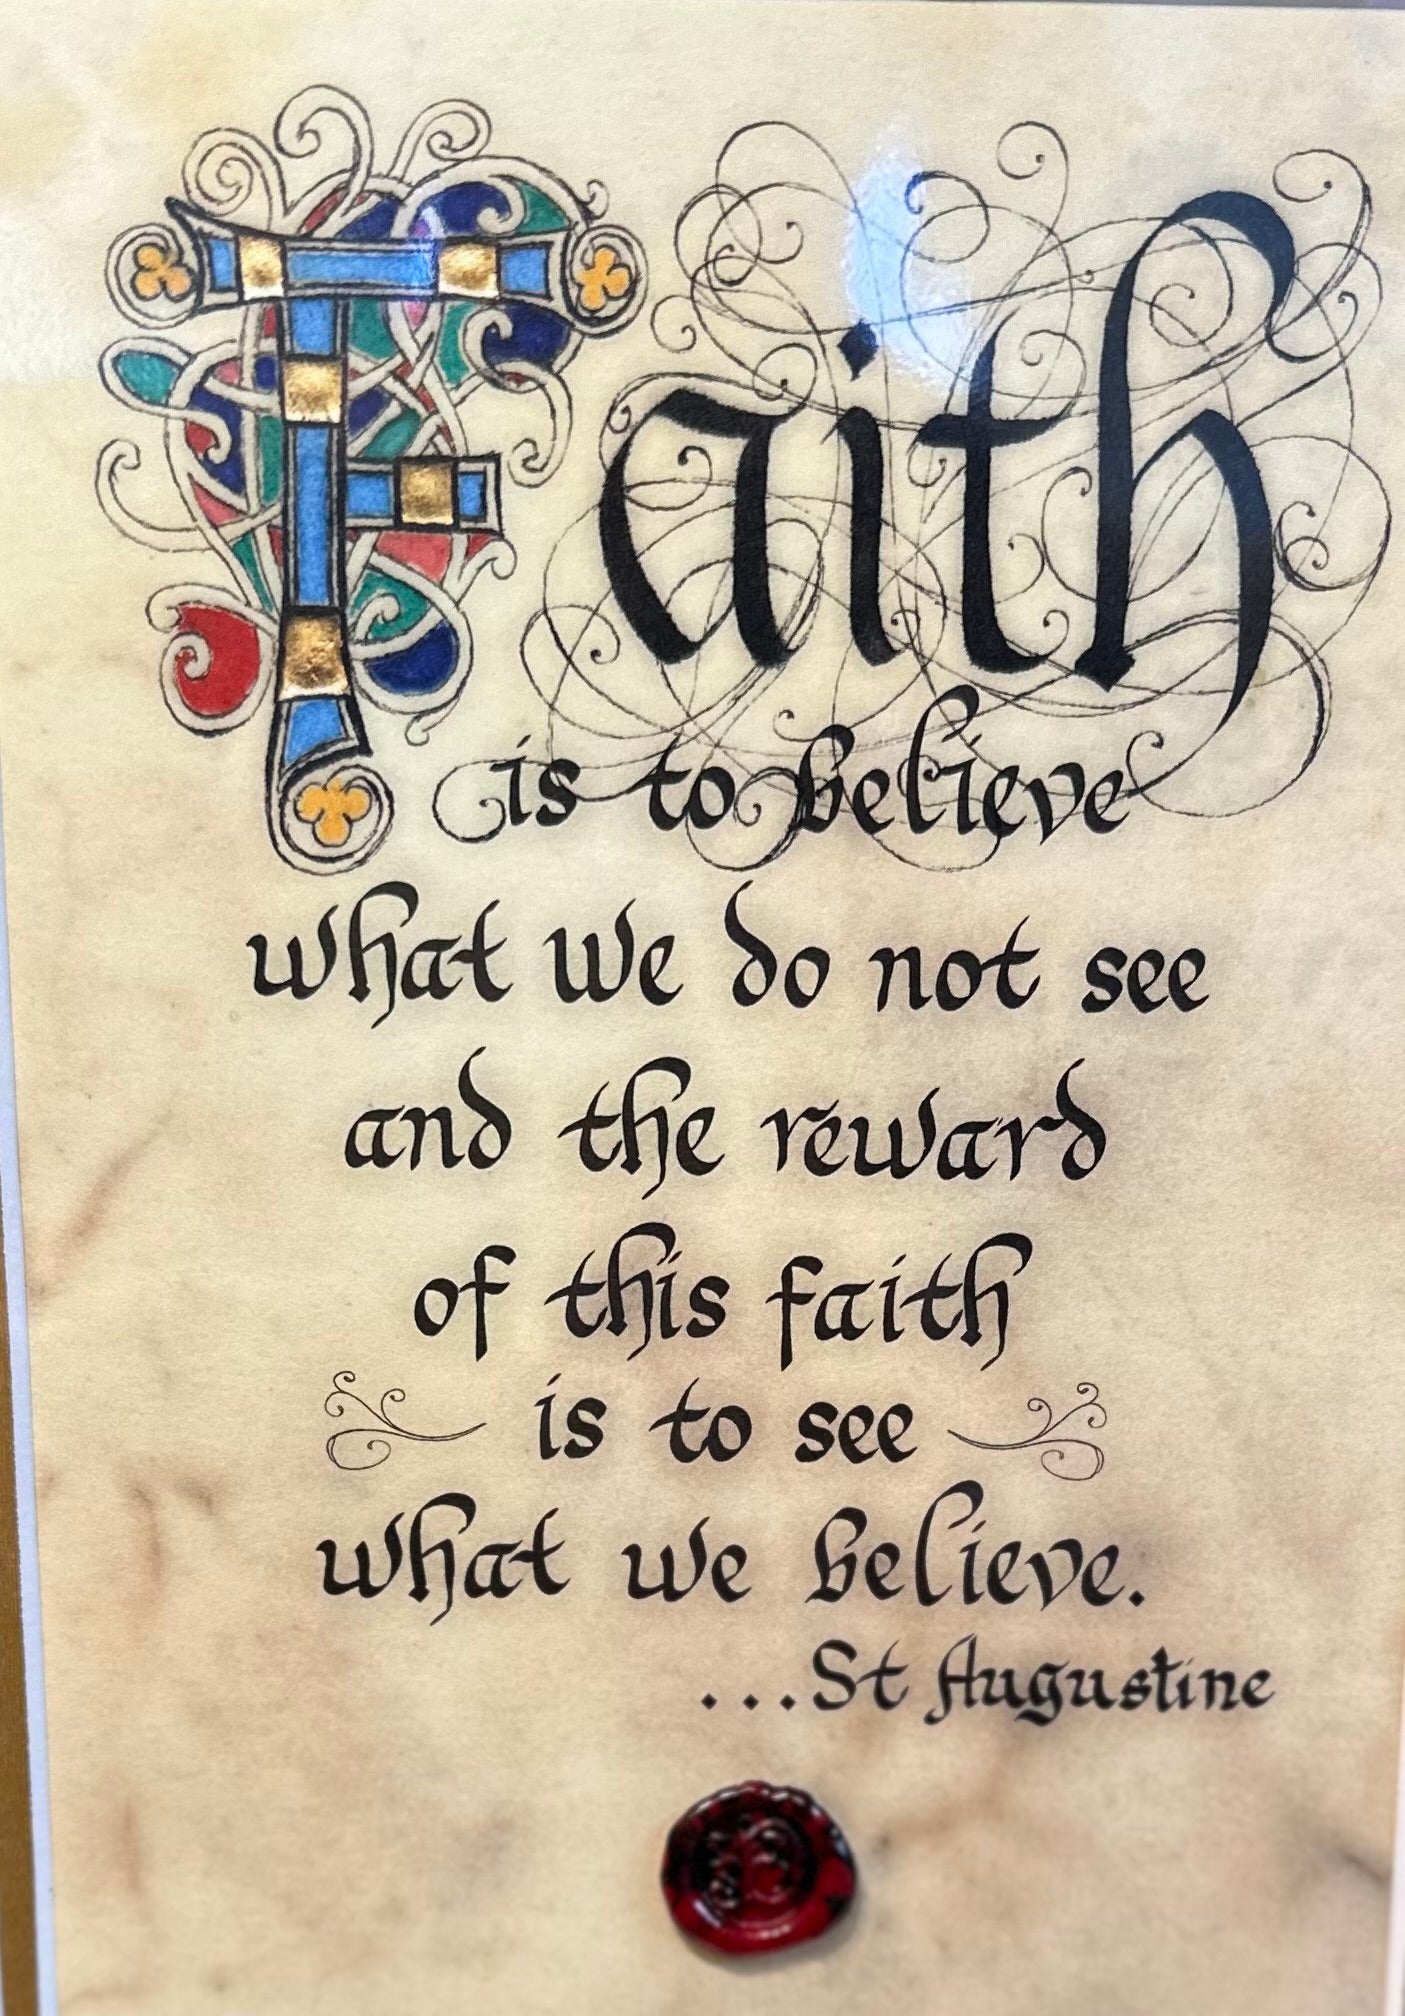 Faith
is to believe
what we do not see
and the reward
of this faith
is to see
what we believe.
...St Augustine